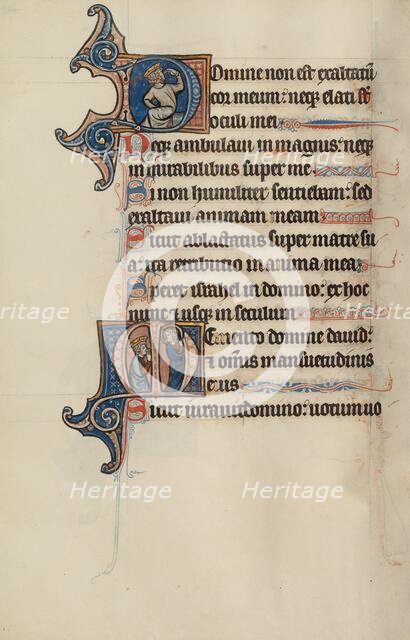 Domine non est exaltatū
cor meum: neqꝫ elati sūt
oculi mei
Neqꝫ ambulaui in magnis: neqꝫ
in mirabilibus super me
Si non humiliter sentiebam: sed
exaltaui animam meam
Sicut ablactatus super matre su
a: ita retributio in anima mea
Speret israhel in domino: ex hoc
nunc et usqꝫ in seculum
Memento domine dauid:
et omnis mansuetudinis
eius
Sicut iurauit domino: uotum uo
Heritage
Heritage
Heritage
Heritage
Heritage
Heritage